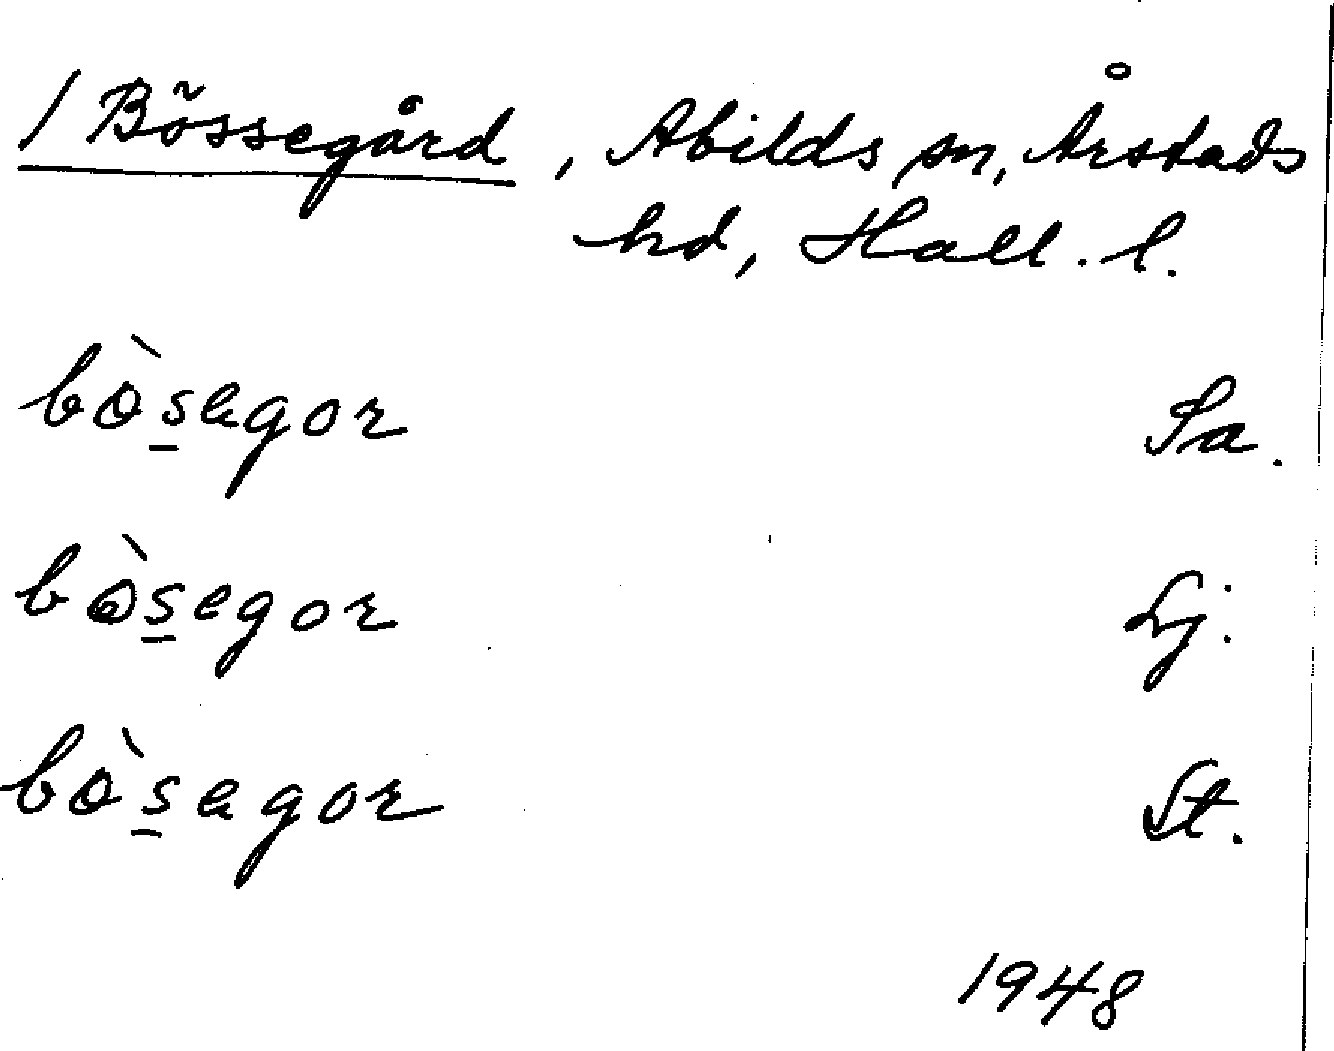 / Bössegård, Abilds sn, Årstads
hd, Hall. l.
bö̀s̲egor Sa.
bö̀s̲egor Lj.
bö̀s̲egor St.
1948